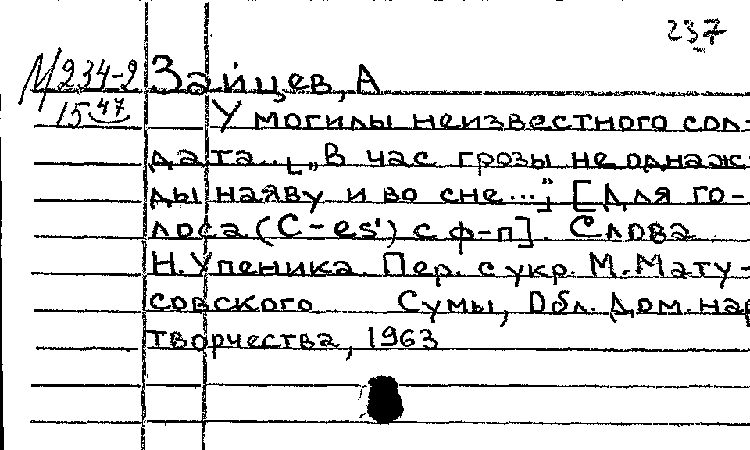 237
М234-2 Зайцев, А
15 47 У могилы неизвестного сол-
дата... [„В час грозы не однаж-
ды наяву и во сне..."] [Для го-
лоса (C-es¹) с ф-п]. Слова
Н. Упеника. Пер. с укр. М. Мату-
совского Сумы, Обл. Дом. нар
творчества, 1963